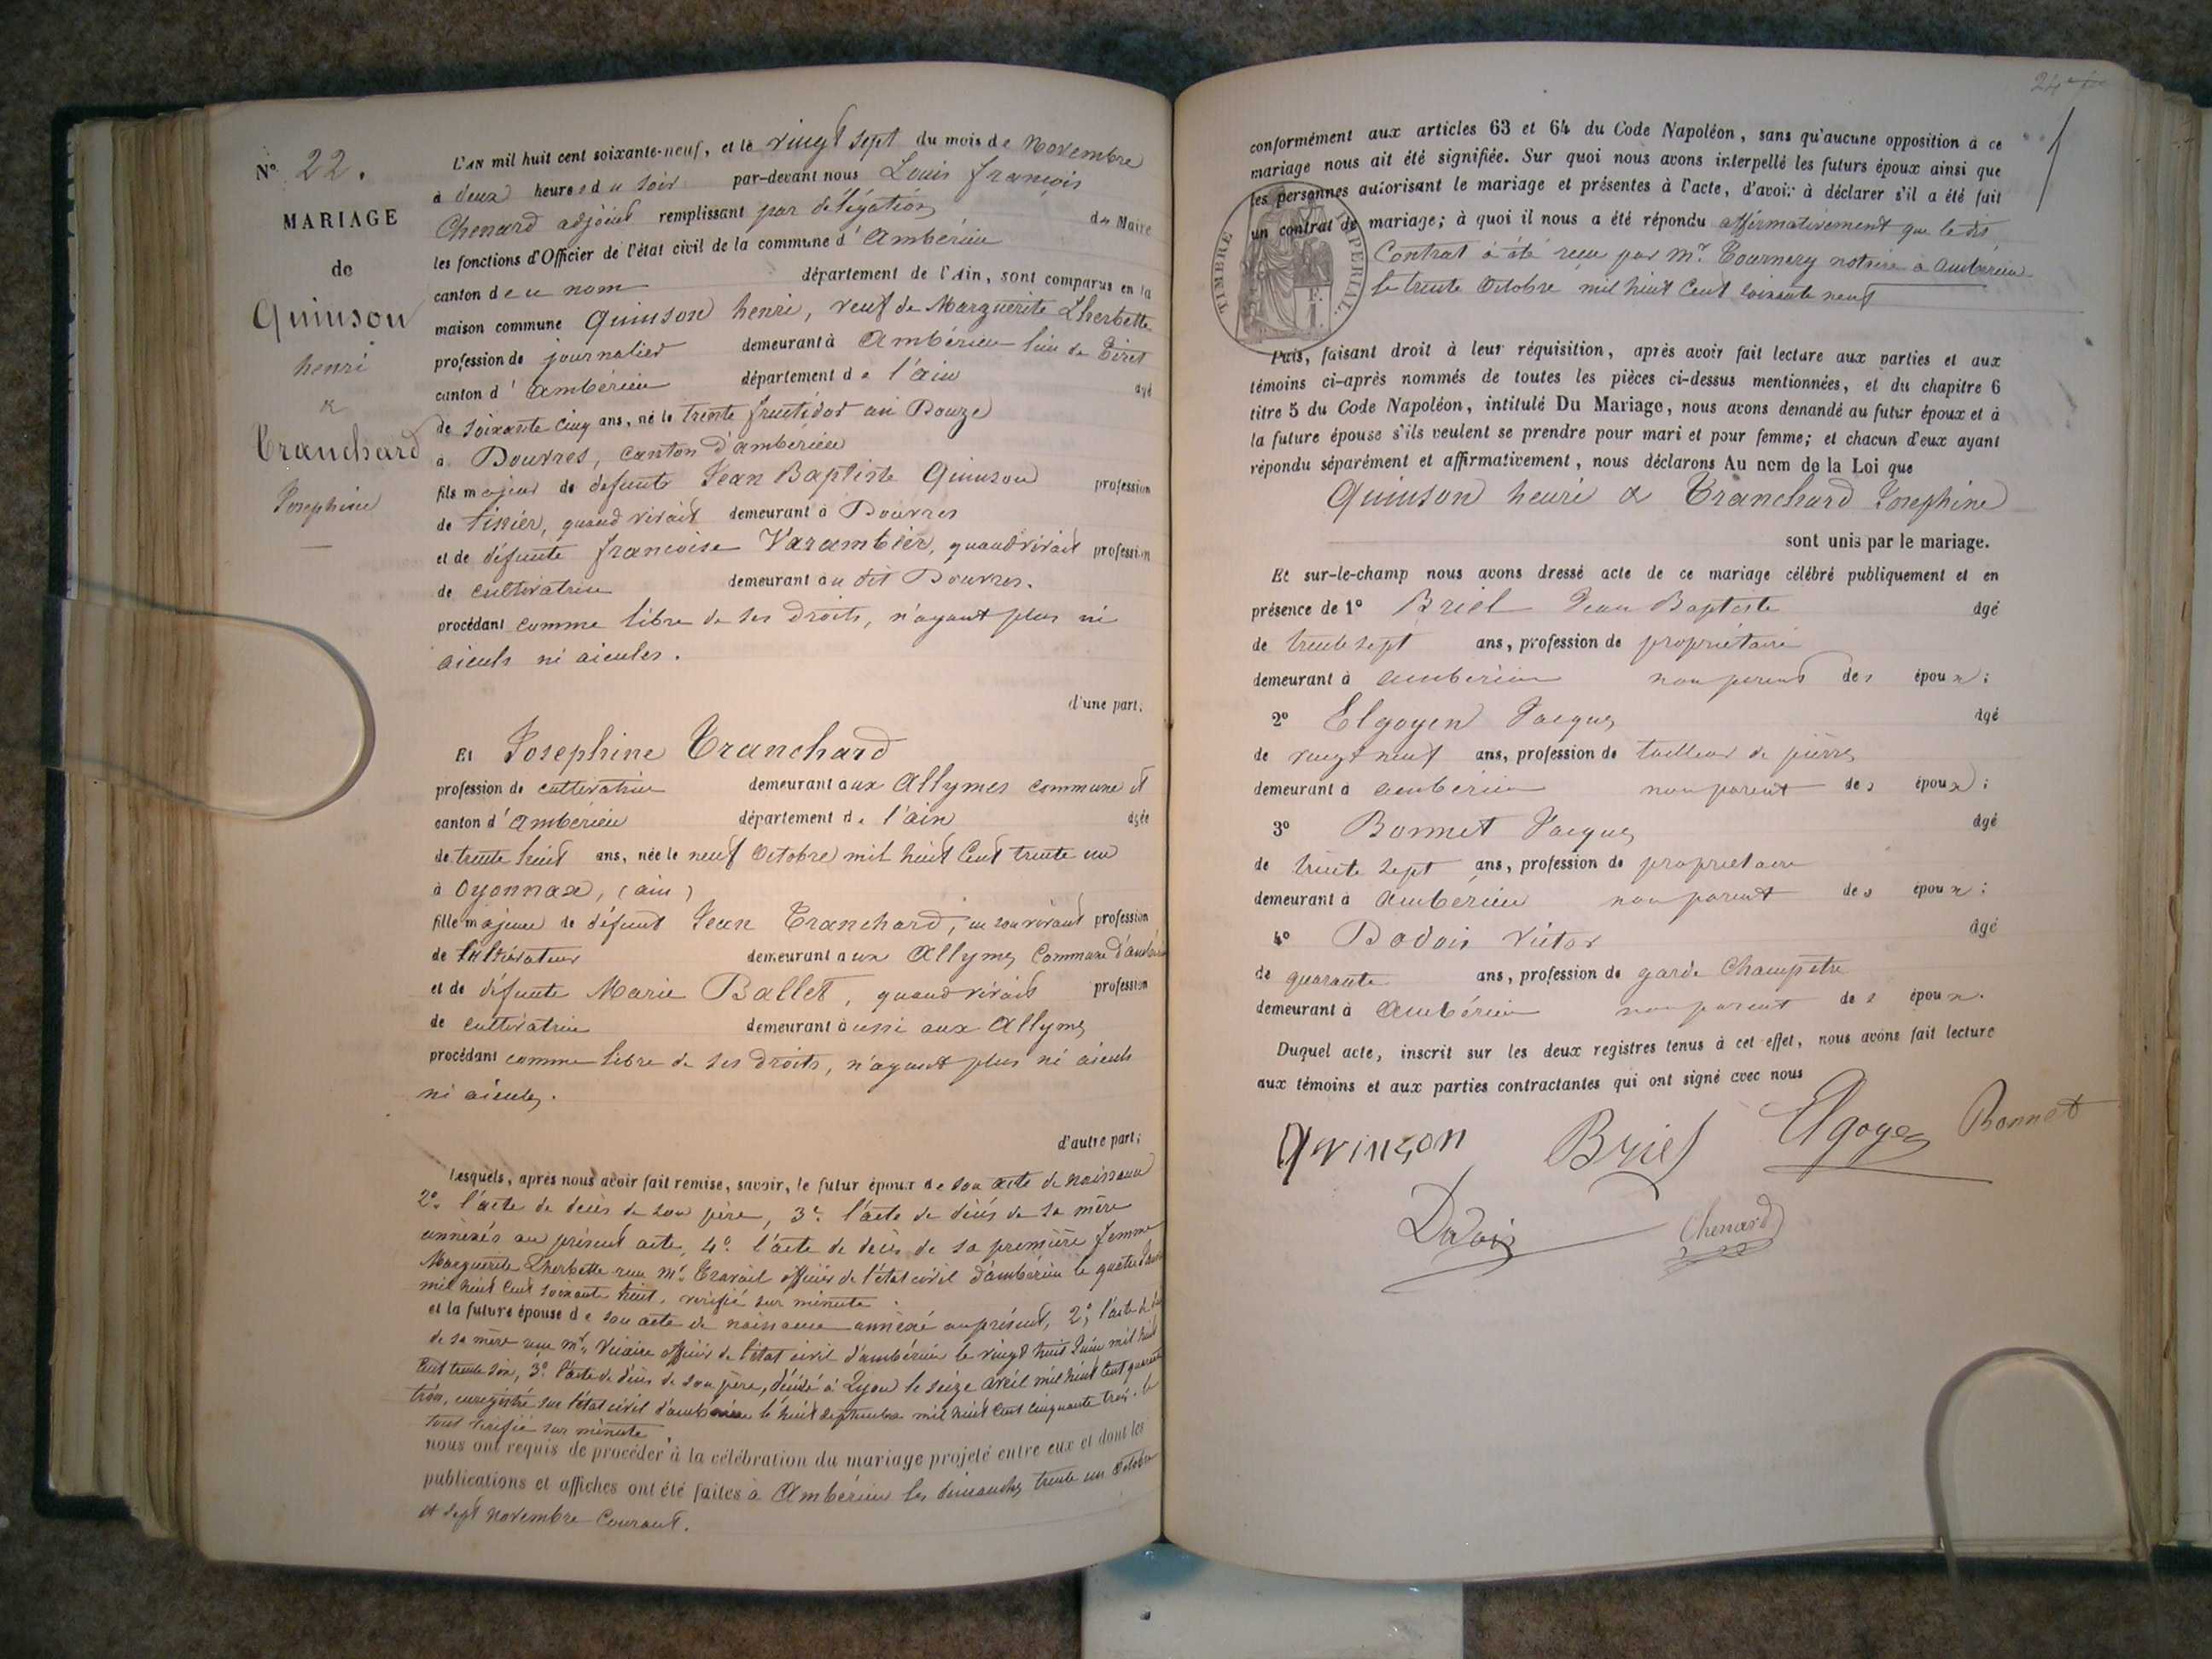 N° 22.
MARIAGE
de
Quinson
henri
&
Tranchard
Josephine
L'AN mil huit cent soixante-neuf, et le vingt sept du mois de Novembre
à deux heures du soir par-devant nous Louis françois
Chenard adjoint remplissant par délégation du Maire
les fonctions d'Officier de l'état civil de la commune d'Ambérieu
canton de ce nom département de l'Ain, sont comparus en la
maison commune Quinson henri, veuf de Marguerite Lherbette
profession de journalier demeurant à Ambérieu
canton d'Ambérieu département de l'ain âgé
de soixante cinq ans, né le trente fructidor an Douze
à Douvres, canton d'ambérieu
fils majeur de defunt Jean Baptiste Quinson profession
de tissier, quand vivait demeurant à Douvres
et de défunte francoise Varambier, quand vivait profession
de cultivatrice demeurant au dit Douvres.
procédant comme libre de ses droits, n'ayant plus ni
aieuls ni aieules.
d'une part;
Et Josephine Tranchard
profession de cultivatrice demeurant aux Allymes commune et
canton d'Ambérieu département de l'ain âgée
de trente huit ans, née le neuf Octobre mil huit Cent trente un
à Oyonnax, (ain)
fille majeure de défunt Jean Tranchard, en son vivant profession
de Cultivateur demeurant aux Allymes Commune d'ambérieu
et de défunte Marie Ballet, quand vivait profession
de cultivatrice demeurant aussi aux Allymes
procédant comme libre de ses droits, n'ayant plus ni aieuls
ni aieules.
d'autre part;
Lesquels, après nous avoir fait remise, savoir, le futur époux de son acte de naissance
2° l'acte de décès de son père, 3° l'acte de décès de sa mère
annexés au présent acte, 4° l'acte de décès de sa première femme
Marguerite Lherbette reçu Mr. Travail officier de l'état civil d'ambérieu le quatre
mil huit Cent soixante huit, verifié sur minute.
et la future épouse de son acte de naissance annexé au présent, 2° l'acte de décès
de sa mère reçu Mr. Vicaire officier de l'état civil d'ambérieu le vingt huit Juin mil huit
Cent trente six, 3° l'acte de décès de son père, décédé à Lyon le seize avril mil huit Cent quarante
trois, enregistré sur l'état civil d'ambérieu le huit septembre mil huit Cent cinquante trois. le
tout vérifié sur minute.
nous ont requis de procéder à la célébration du mariage projeté entre eux et dont les
publications et affiches ont été faites à Ambérieu les dimanches trente un Octobre
et sept novembre Courant.
conformément aux articles 63 et 64 du Code Napoléon, sans qu'aucune opposition à ce
mariage nous ait été signifiée. Sur quoi nous avons interpellé les futurs époux ainsi que
les personnes autorisant le mariage et présentes à l'acte, d'avoir à déclarer s'il a été fait
un contrat de mariage; à quoi il nous a été répondu affirmativement que le dit
Contrat à été reçu par Mr. Tournery notaire à Ambérieu
le trente Octobre mil huit Cent soixante neuf
TIMBRE IMPERIAL
Puis, faisant droit à leur réquisition, après avoir fait lecture aux parties et aux
témoins ci-après nommés de toutes les pièces ci-dessus mentionnées, et du chapitre 6
titre 5 du Code Napoléon, intitulé Du Mariage, nous avons demandé au futur époux et à
la future épouse s'ils veulent se prendre pour mari et pour femme; et chacun d'eux ayant
répondu séparément et affirmativement, nous déclarons Au nom de la Loi que
Quinson henri & Tranchard Josephine
sont unis par le mariage.
Et sur-le-champ nous avons dressé acte de ce mariage célébré publiquement et en
présence de 1° Briel Jean Baptiste âgé
de trente sept ans, profession de propriétaire
demeurant à ambérieu non parent des époux;
2° Elgoyen Jacques âgé
de vingt neuf ans, profession de tailleur de pierres
demeurant à ambérieu non parent des époux;
3° Bonnet Jacques âgé
de trente sept ans, profession de propriétaire
demeurant à Ambérieu non parent des époux;
4° Dodois Victor âgé
de quarante ans, profession de garde Champêtre
demeurant à Ambérieu non parent des époux.
Duquel acte, inscrit sur les deux registres tenus à cet effet, nous avons fait lecture
aux témoins et aux parties contractantes qui ont signé avec nous
Qvinson Briel Elgoyen Bonnet
Dodois Chenard